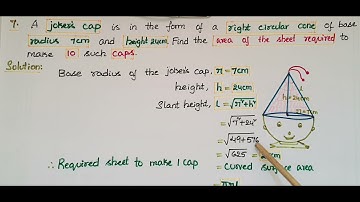 7. A joker's cap is in the form of a right circular cone of base
radius 7cm and height 24cm. Find the area of the sheet required to
make 10 such caps.
Solution:
Base radius of the joker's cap, r = 7cm
height, h = 24cm
Slant height, l = √r²+h²
= √7²+24²
= √49+576
= √625 = cm
∴ Required sheet to make 1 cap = Curved surface area
= πrl
h=24cm
r=7cm
l